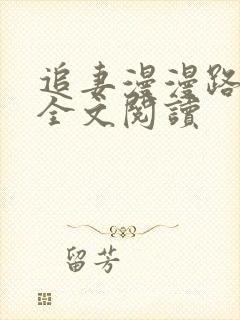 追妻漫漫路
全文閱讀
留芳